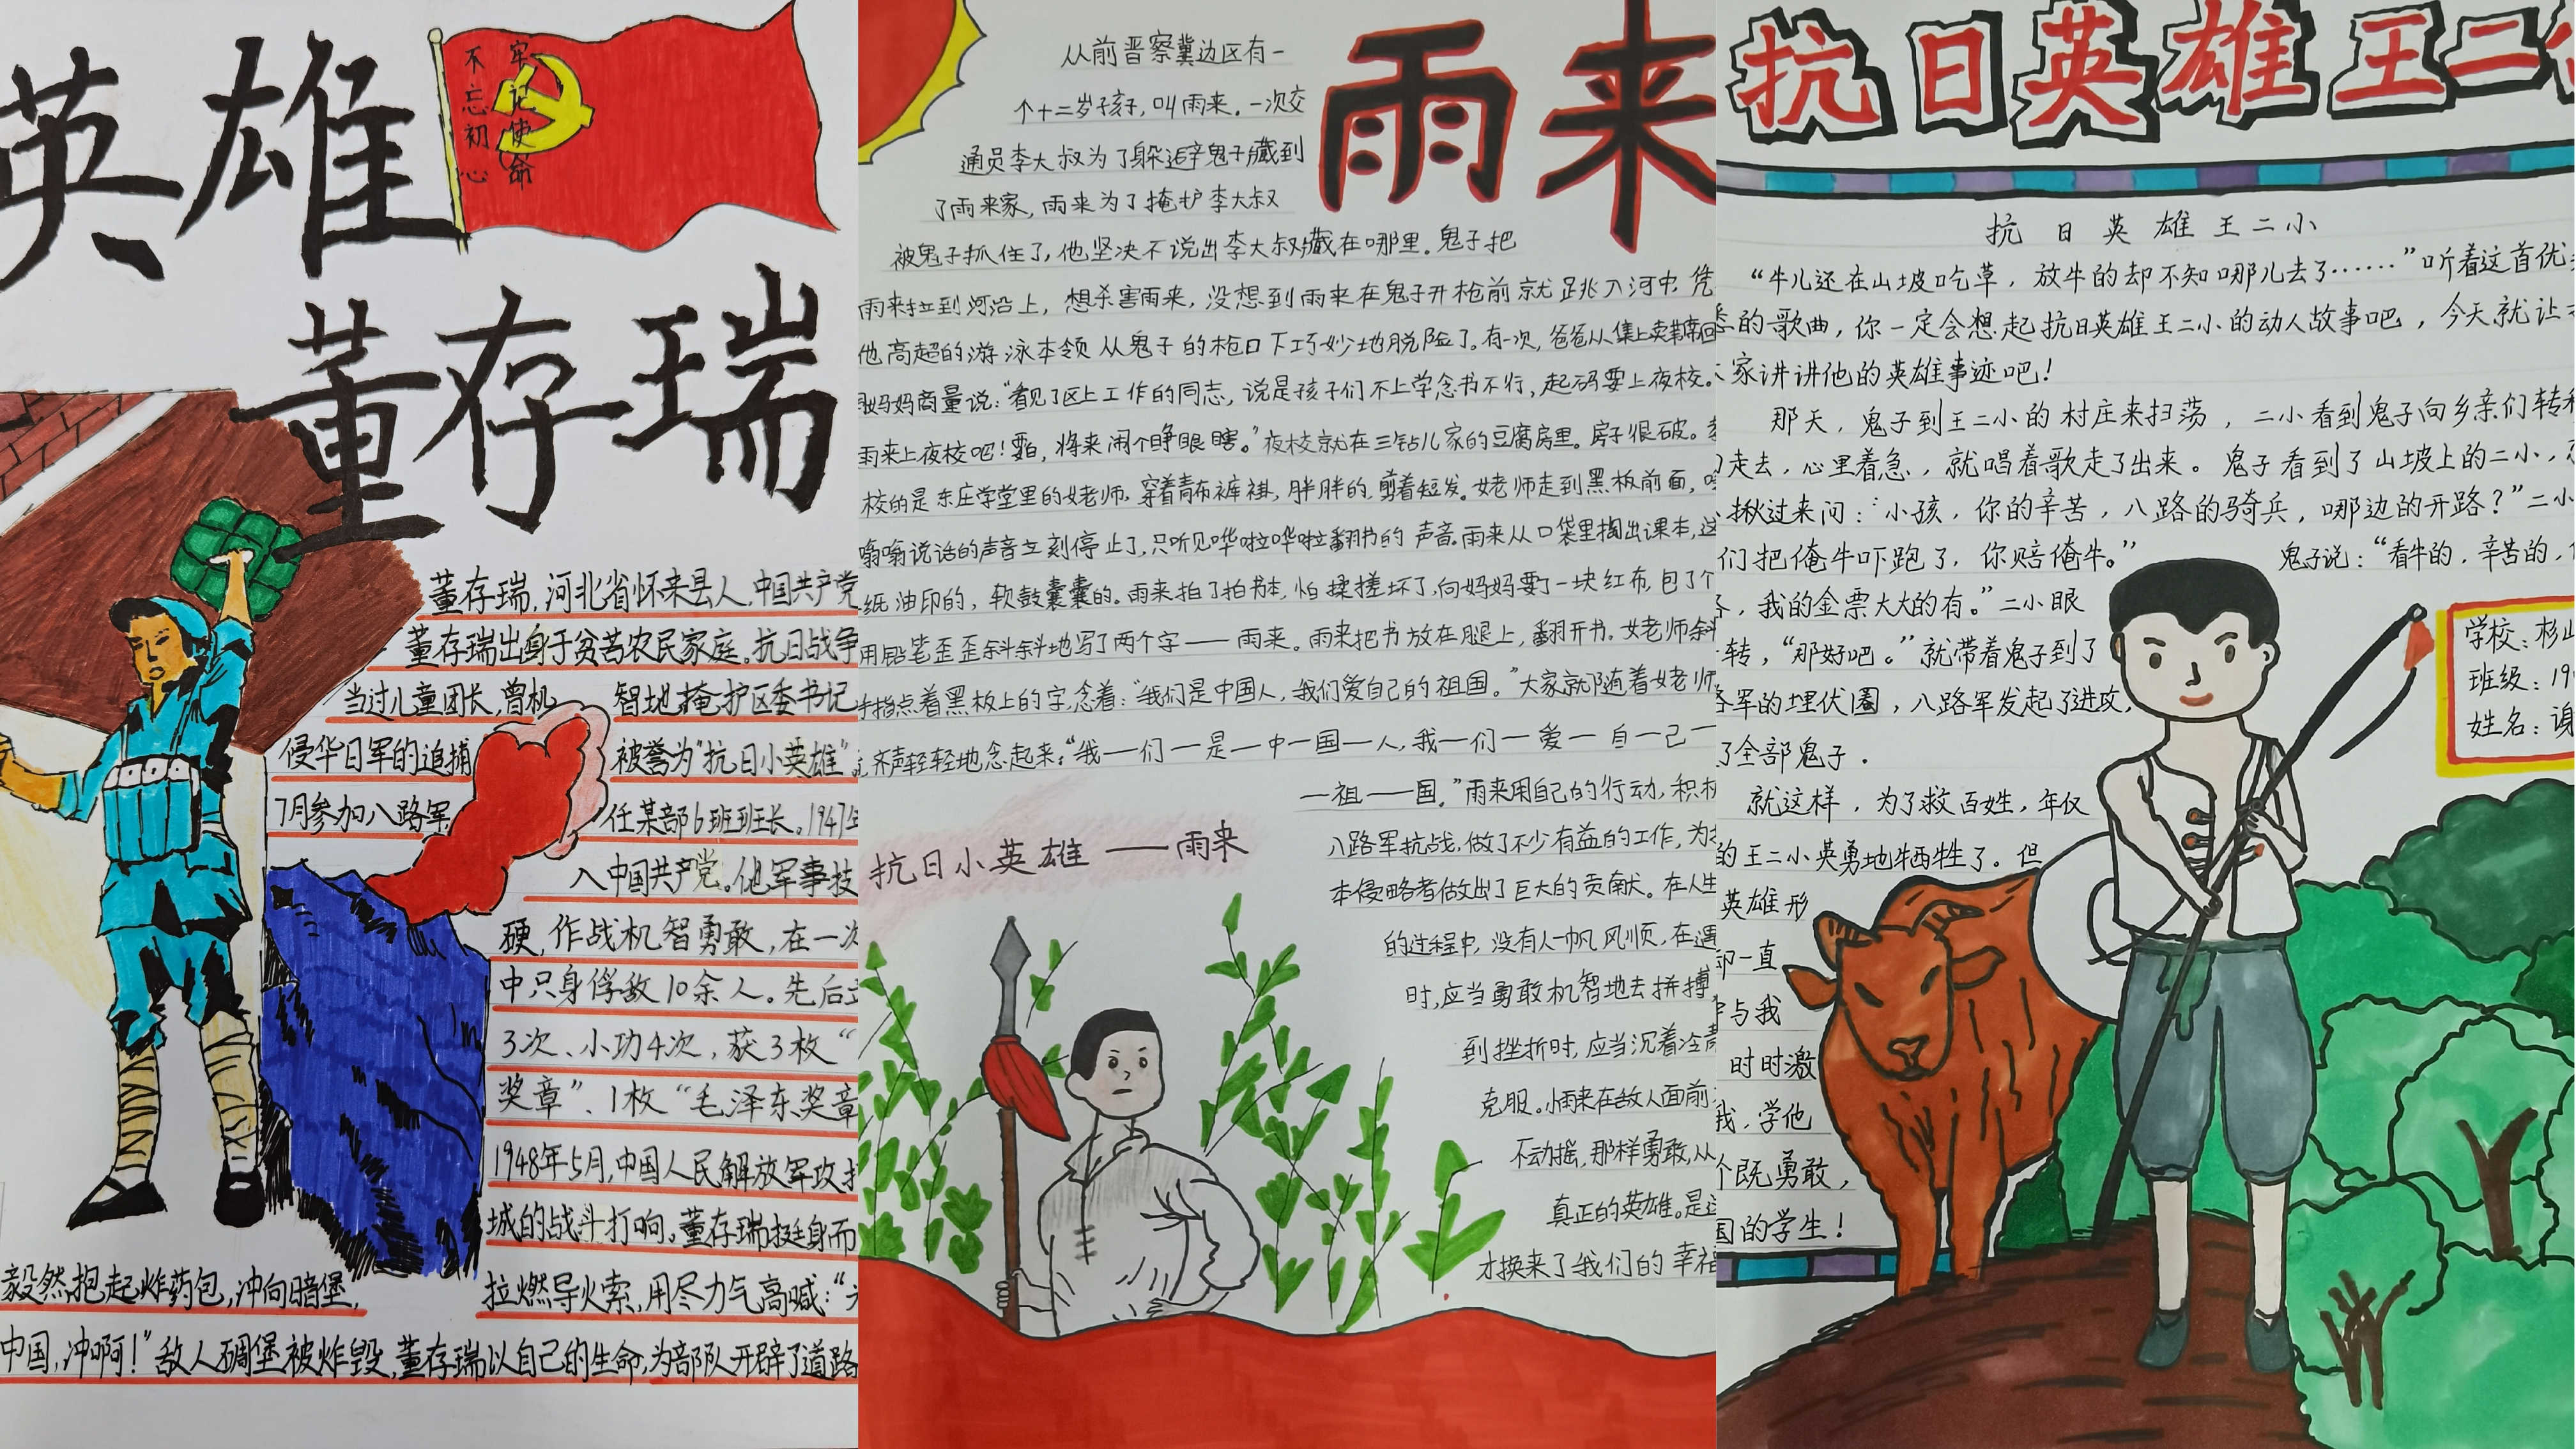 英雄
不忘初心
牢记使命
董存瑞
董存瑞,河北省怀来县人,中国共产党
董存瑞出身于贫苦农民家庭。抗日战争
当过儿童团长,曾机 智地掩护区委书记
侵华日军的追捕 被誉为"抗日小英雄"
7月参加八路军 任某部6班班长。1947年
入中国共产党。他军事技
硬,作战机智勇敢,在一次
中只身俘敌10余人。先后立
3次、小功4次,获3枚“
奖章”、1枚“毛泽东奖章
1948年5月,中国人民解放军攻打
城的战斗打响。董存瑞挺身而
毅然抱起炸药包,冲向暗堡, 拉燃导火索,用尽力气高喊:“
中国,冲啊!”敌人碉堡被炸毁,董存瑞以自己的生命,为部队开辟了道路
雨来
从前晋察冀边区有一
个十二岁孩子,叫雨来。一次交
通员李大叔为了躲避鬼子,藏到
了雨来家,雨来为了掩护李大叔
被鬼子抓住了,他坚决不说出李大叔藏在哪里。鬼子把
雨来拉到河沿上,想杀害雨来,没想到雨来在鬼子开枪前就跳入河中,凭
他高超的游泳本领从鬼子的枪口下巧妙地脱险了。有一次,爸爸从集上卖苇席回
跟妈妈商量说:“看见了区上工作的同志,说是孩子们不上学念书不行,起码要上夜校。
雨来上夜校吧!要不,将来闹个睁眼瞎。”夜校就在三钻儿家的豆腐房里。房子很破。
校的是东庄学堂里的女老师,穿着青布裤褂,胖胖的,剪着短发。女老师走到黑板前面,
嗡嗡说话的声音立刻停止了,只听见哗啦哗啦翻书的声音。雨来从口袋里掏出课本,这
纸油印的,软鼓囊囊的。雨来拍了拍书本,怕揉搓坏了,向妈妈要了一块红布,包了个
用铅笔歪歪斜斜地写了两个字——雨来。雨来把书放在腿上,翻开书。女老师斜
手指点着黑板上的字,念着:“我们是中国人,我们爱自己的祖国。”大家就随着女老师
齐声轻轻地念起来:“我—们—是—中—国—人,我—们—爱—自—己—
—祖—国。”雨来用自己的行动,积极
八路军抗战,做了不少有益的工作,为
本侵略者做出了巨大的贡献。在人生
的过程中,没有人一帆风顺,在遇
时,应当勇敢机智地去拼搏
到挫折时,应当沉着冷静
克服。小雨来在敌人面前
不动摇,那样勇敢,从
真正的英雄。是这
才换来了我们的幸福
抗日小英雄——雨来
抗日英雄王二
抗日英雄王二小
“牛儿还在山坡吃草,放牛的却不知哪儿去了……”听着这首优
的歌曲,你一定会想起抗日英雄王二小的动人故事吧,今天就让
家讲讲他的英雄事迹吧!
那天,鬼子到王二小的村庄来扫荡,二小看到鬼子向乡亲们转移
走去,心里着急,就唱着歌走了出来。鬼子看到了山坡上的二小,
揪过来问:“小孩,你的辛苦,八路的骑兵,哪边的开路?”二小
们把俺牛吓跑了,你赔俺牛。” 鬼子说:“看牛的,辛苦的,
,我的金票大大的有。”二小眼
转,“那好吧。”就带着鬼子到了
路军的埋伏圈,八路军发起了进攻,
了全部鬼子.
就这样,为了救百姓,年仅
的王二小英勇地牺牲了。但
英雄形
却一直
与我
时时激
我,学他
个既勇敢,
国的学生!
学校:杉山
班级:19
姓名: